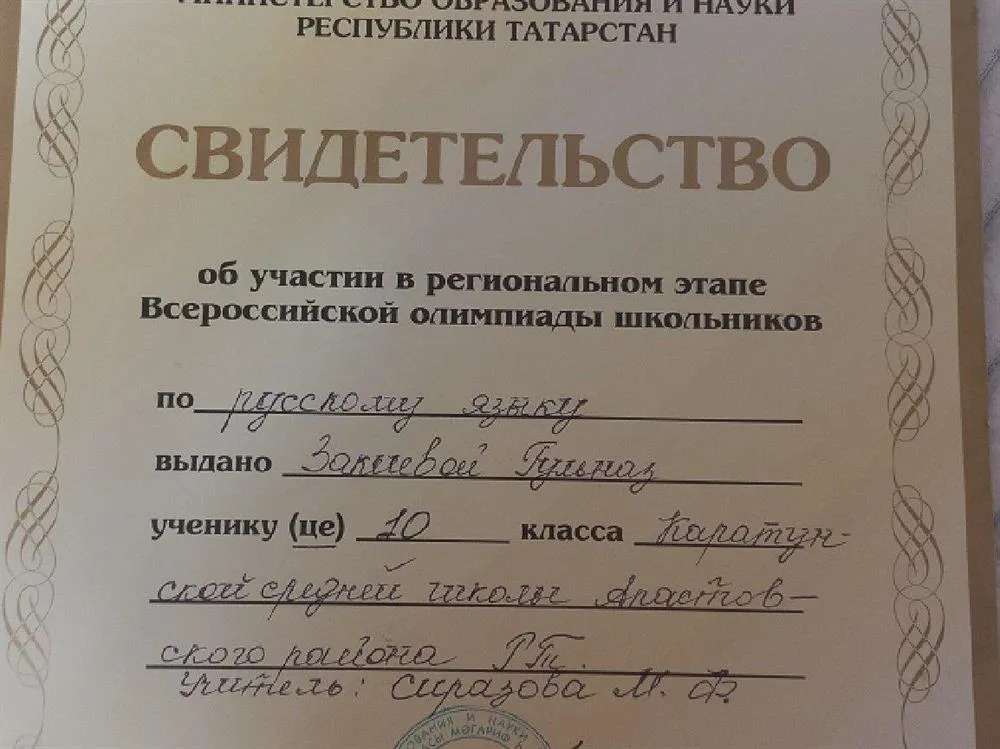 МИНИСТЕРСТВО ОБРАЗОВАНИЯ И НАУКИ
РЕСПУБЛИКИ ТАТАРСТАН
СВИДЕТЕЛЬСТВО
об участии в региональном этапе
Всероссийской олимпиады школьников
по русскому языку
выдано Закиевой Гульназ
ученику (це) 10 класса Каратун-
ской средней школы Апастов-
ского района РТ.
Учитель: Сиразова М. Ф.
ОВАНИЯ И НАУКИ
МӘГАРИФ